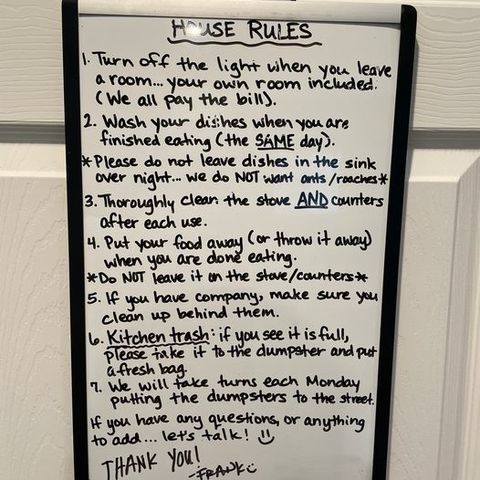 HOUSE RULES
1. Turn off the light when you leave
a room... your own room included.
(We all pay the bill).
2. Wash your dishes when you are
finished eating (the SAME day).
*Please do not leave dishes in the sink
over night... we do NOT want ants/roaches*
3. Thoroughly clean the stove AND counters
after each use.
4. Put your food away (or throw it away)
when you are done eating.
*Do NOT leave it on the stove/counters*
5. If you have company, make sure you
clean up behind them.
6. Kitchen trash: if you see it is full,
please take it to the dumpster and put
a fresh bag.
7. We will take turns each Monday
putting the dumpsters to the street.
If you have any questions, or anything
to add... let's talk! ☺
THANK YOU!
-FRANK☺